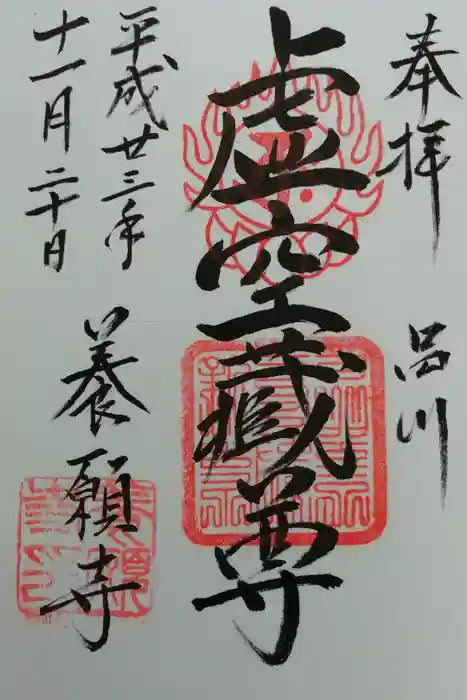 奉拝
品川
虚空蔵尊
平成廿三年
十一月二十日
養願寺